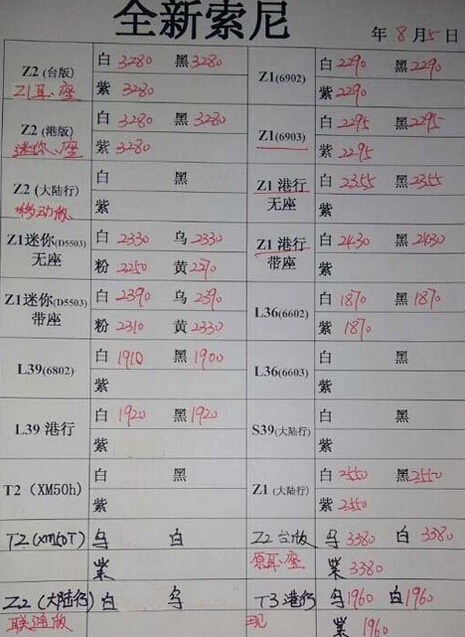 全新索尼
年 8月5日
Z2 (台版) 白 3280 黑 3280
Z1耳、座 紫 3280
Z1(6902) 白 2290 黑 2290
紫 2290
Z2 (港版) 白 3280 黑 3280
迷你、座 紫 3280
Z1(6903) 白 2295 黑 2295
紫 2295
Z2 (大陆行) 白 黑
移动版 紫
Z1 港行 白 2355 黑 2355
无座 紫
Z1迷你(D5503) 白 2330 乌 2330
无座 粉 2250 黄 2270
Z1 港行 白 2430 黑 2430
带座 紫
Z1迷你(D5503) 白 2390 乌 2390
带座 粉 2310 黄 2330
L36(6602) 白 1870 黑 1870
紫 1870
L39(6802) 白 1910 黑 1900
紫
L36(6603) 白 黑
紫
L39 港行 白 1920 黑 1920
紫
S39(大陆行) 白 黑
紫
T2 (XM50h) 白 黑
紫
Z1 (大陆行) 白 2550 黑 2550
紫
T2(xm50T) 乌 白
紫
Z2 台版 乌 3380 白 3380
原耳座 紫 3380
Z2 (大陆行) 白 乌
联通版
T3 港行 乌 1960 白 1960
现 紫 1960